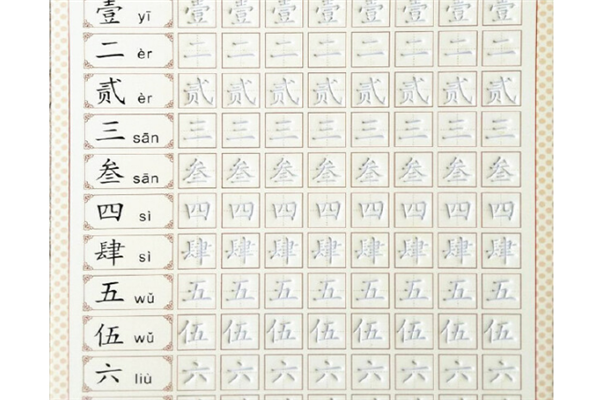 壹 yī 壹 壹 壹 壹 壹 壹 壹 壹
二 èr 二 二 二 二 二 二 二 二
贰 èr 贰 贰 贰 贰 贰 贰 贰 贰
三 sān 三 三 三 三 三 三 三 三
叁 sān 叁 叁 叁 叁 叁 叁 叁 叁
四 sì 四 四 四 四 四 四 四 四
肆 sì 肆 肆 肆 肆 肆 肆 肆 肆
五 wǔ 五 五 五 五 五 五 五 五
伍 wǔ 伍 伍 伍 伍 伍 伍 伍 伍
六 liù 六 六 六 六 六 六 六 六